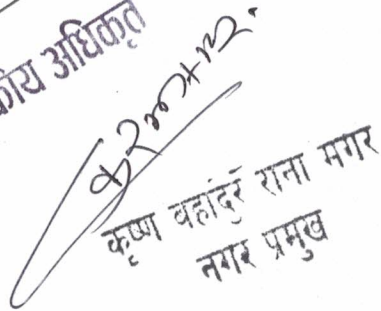 अधिकृत
कृष्ण बहादुर राना मगर
नगर प्रमुख